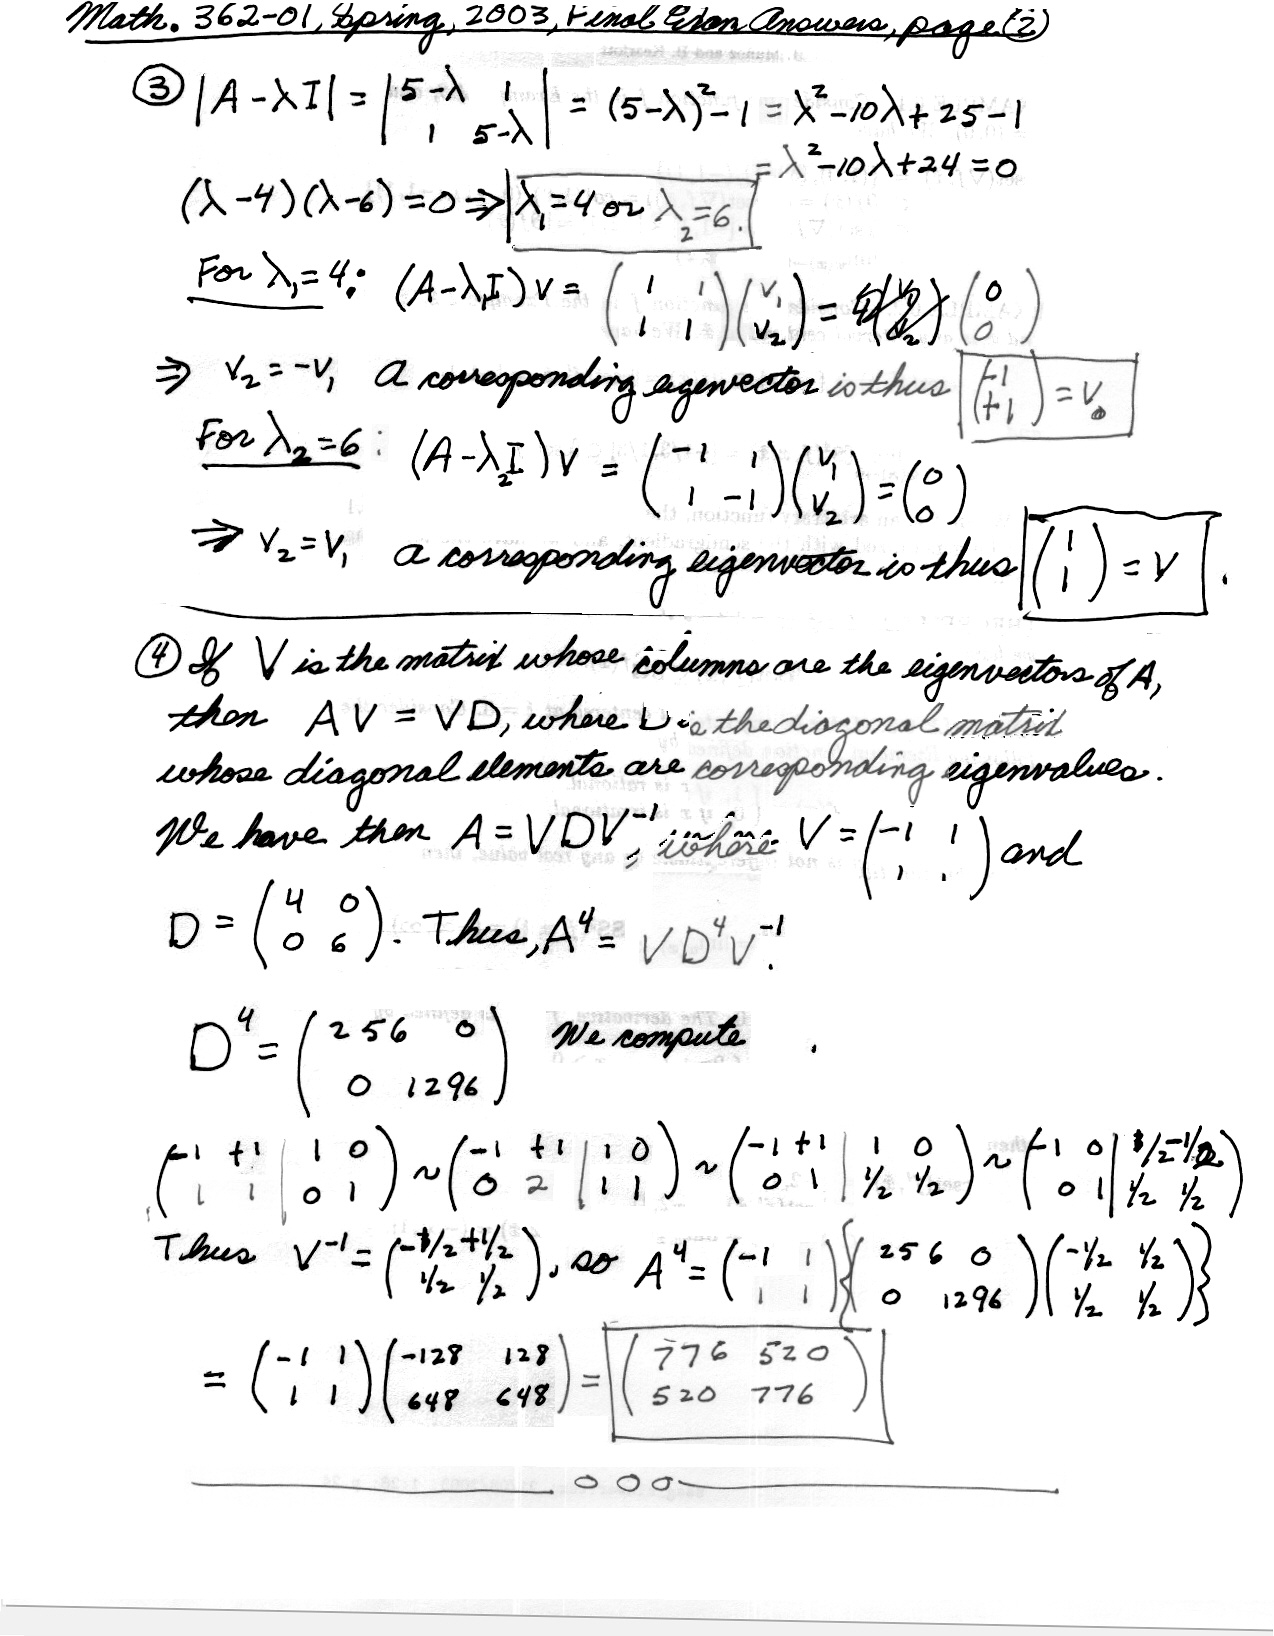 Math. 362-01, Spring, 2003, Final Exam Answers, page (2)
③ |A-λI| = |5-λ 1; 1 5-λ| = (5-λ)²-1 = λ²-10λ+25-1
= λ²-10λ+24=0
(λ-4)(λ-6)=0 ⇒ λ₁=4 or λ₂=6.
For λ₁=4: (A-λ₁I)v = (1 1; 1 1)(v₁; v₂) = (0; 0)
⇒ v₂=-v₁ a corresponding eigenvector is thus (-1; +1) = v.
For λ₂=6: (A-λ₂I)v = (-1 1; 1 -1)(v₁; v₂) = (0; 0)
⇒ v₂=v₁ a corresponding eigenvector is thus (1; 1) = v.
④ If V is the matrix whose columns are the eigenvectors of A,
then AV = VD, where D is the diagonal matrix
whose diagonal elements are corresponding eigenvalues.
We have then A = VDV⁻¹, where V = (-1 1; 1 1) and
D = (4 0; 0 6). Thus, A⁴ = VD⁴V⁻¹.
D⁴ = (256 0; 0 1296) We compute
(-1 +1 | 1 0; 1 1 | 0 1) ~ (-1 +1 | 1 0; 0 2 | 1 1) ~ (-1 +1 | 1 0; 0 1 | 1/2 1/2) ~ (-1 0 | 1/2 -1/2; 0 1 | 1/2 1/2)
Thus V⁻¹ = (-1/2 +1/2; 1/2 1/2), so A⁴ = (-1 1; 1 1){(256 0; 0 1296)(-1/2 1/2; 1/2 1/2)}
= (-1 1; 1 1)(-128 128; 648 648) = (776 520; 520 776)